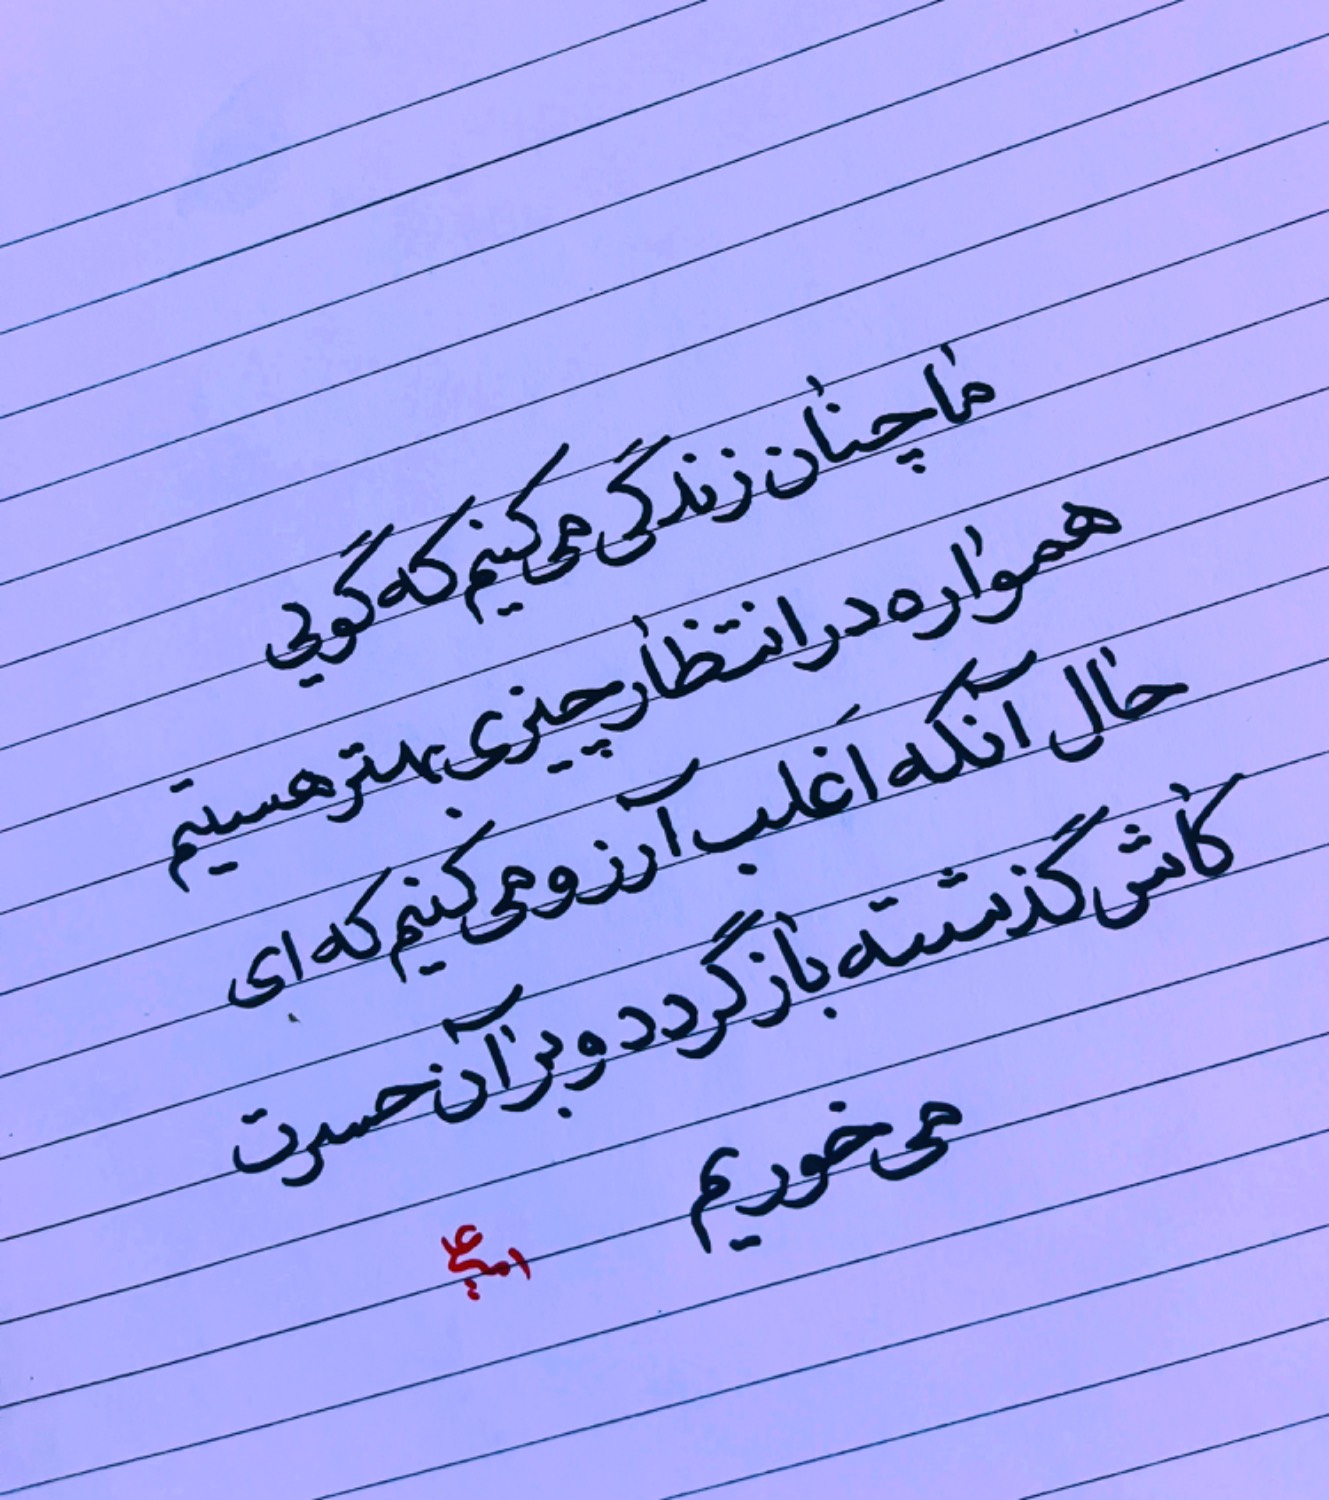 ما چنان زندگی می‌کنیم که گویی
همواره در انتظار چیزی بهتر هستیم
حال آنکه اغلب آرزو می‌کنیم که ای
کاش گذشته بازگردد و بر آن حسرت
می‌خوریم